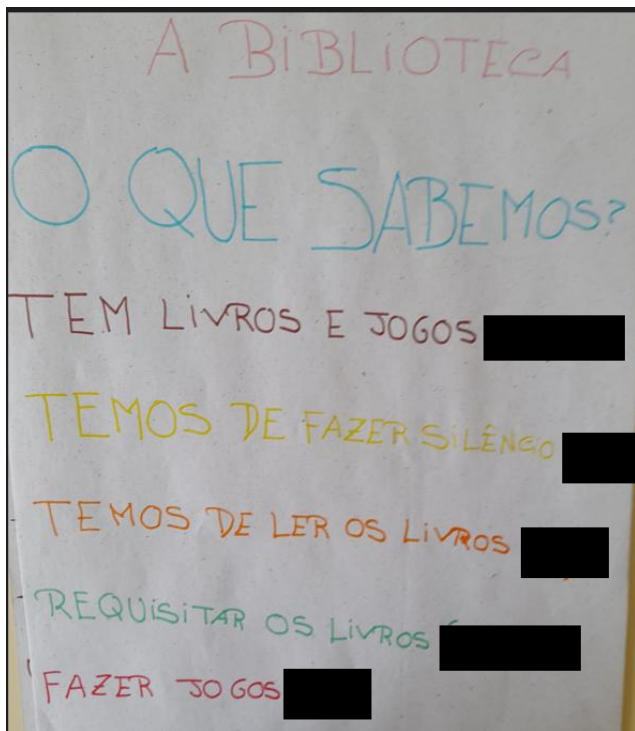 A BIBLIOTECA
O QUE SABEMOS?
TEM LIVROS E JOGOS
TEMOS DE FAZER SILÊNCO
TEMOS DE LER OS LIVROS
REQUISITAR OS LIVROS
FAZER JOGOS